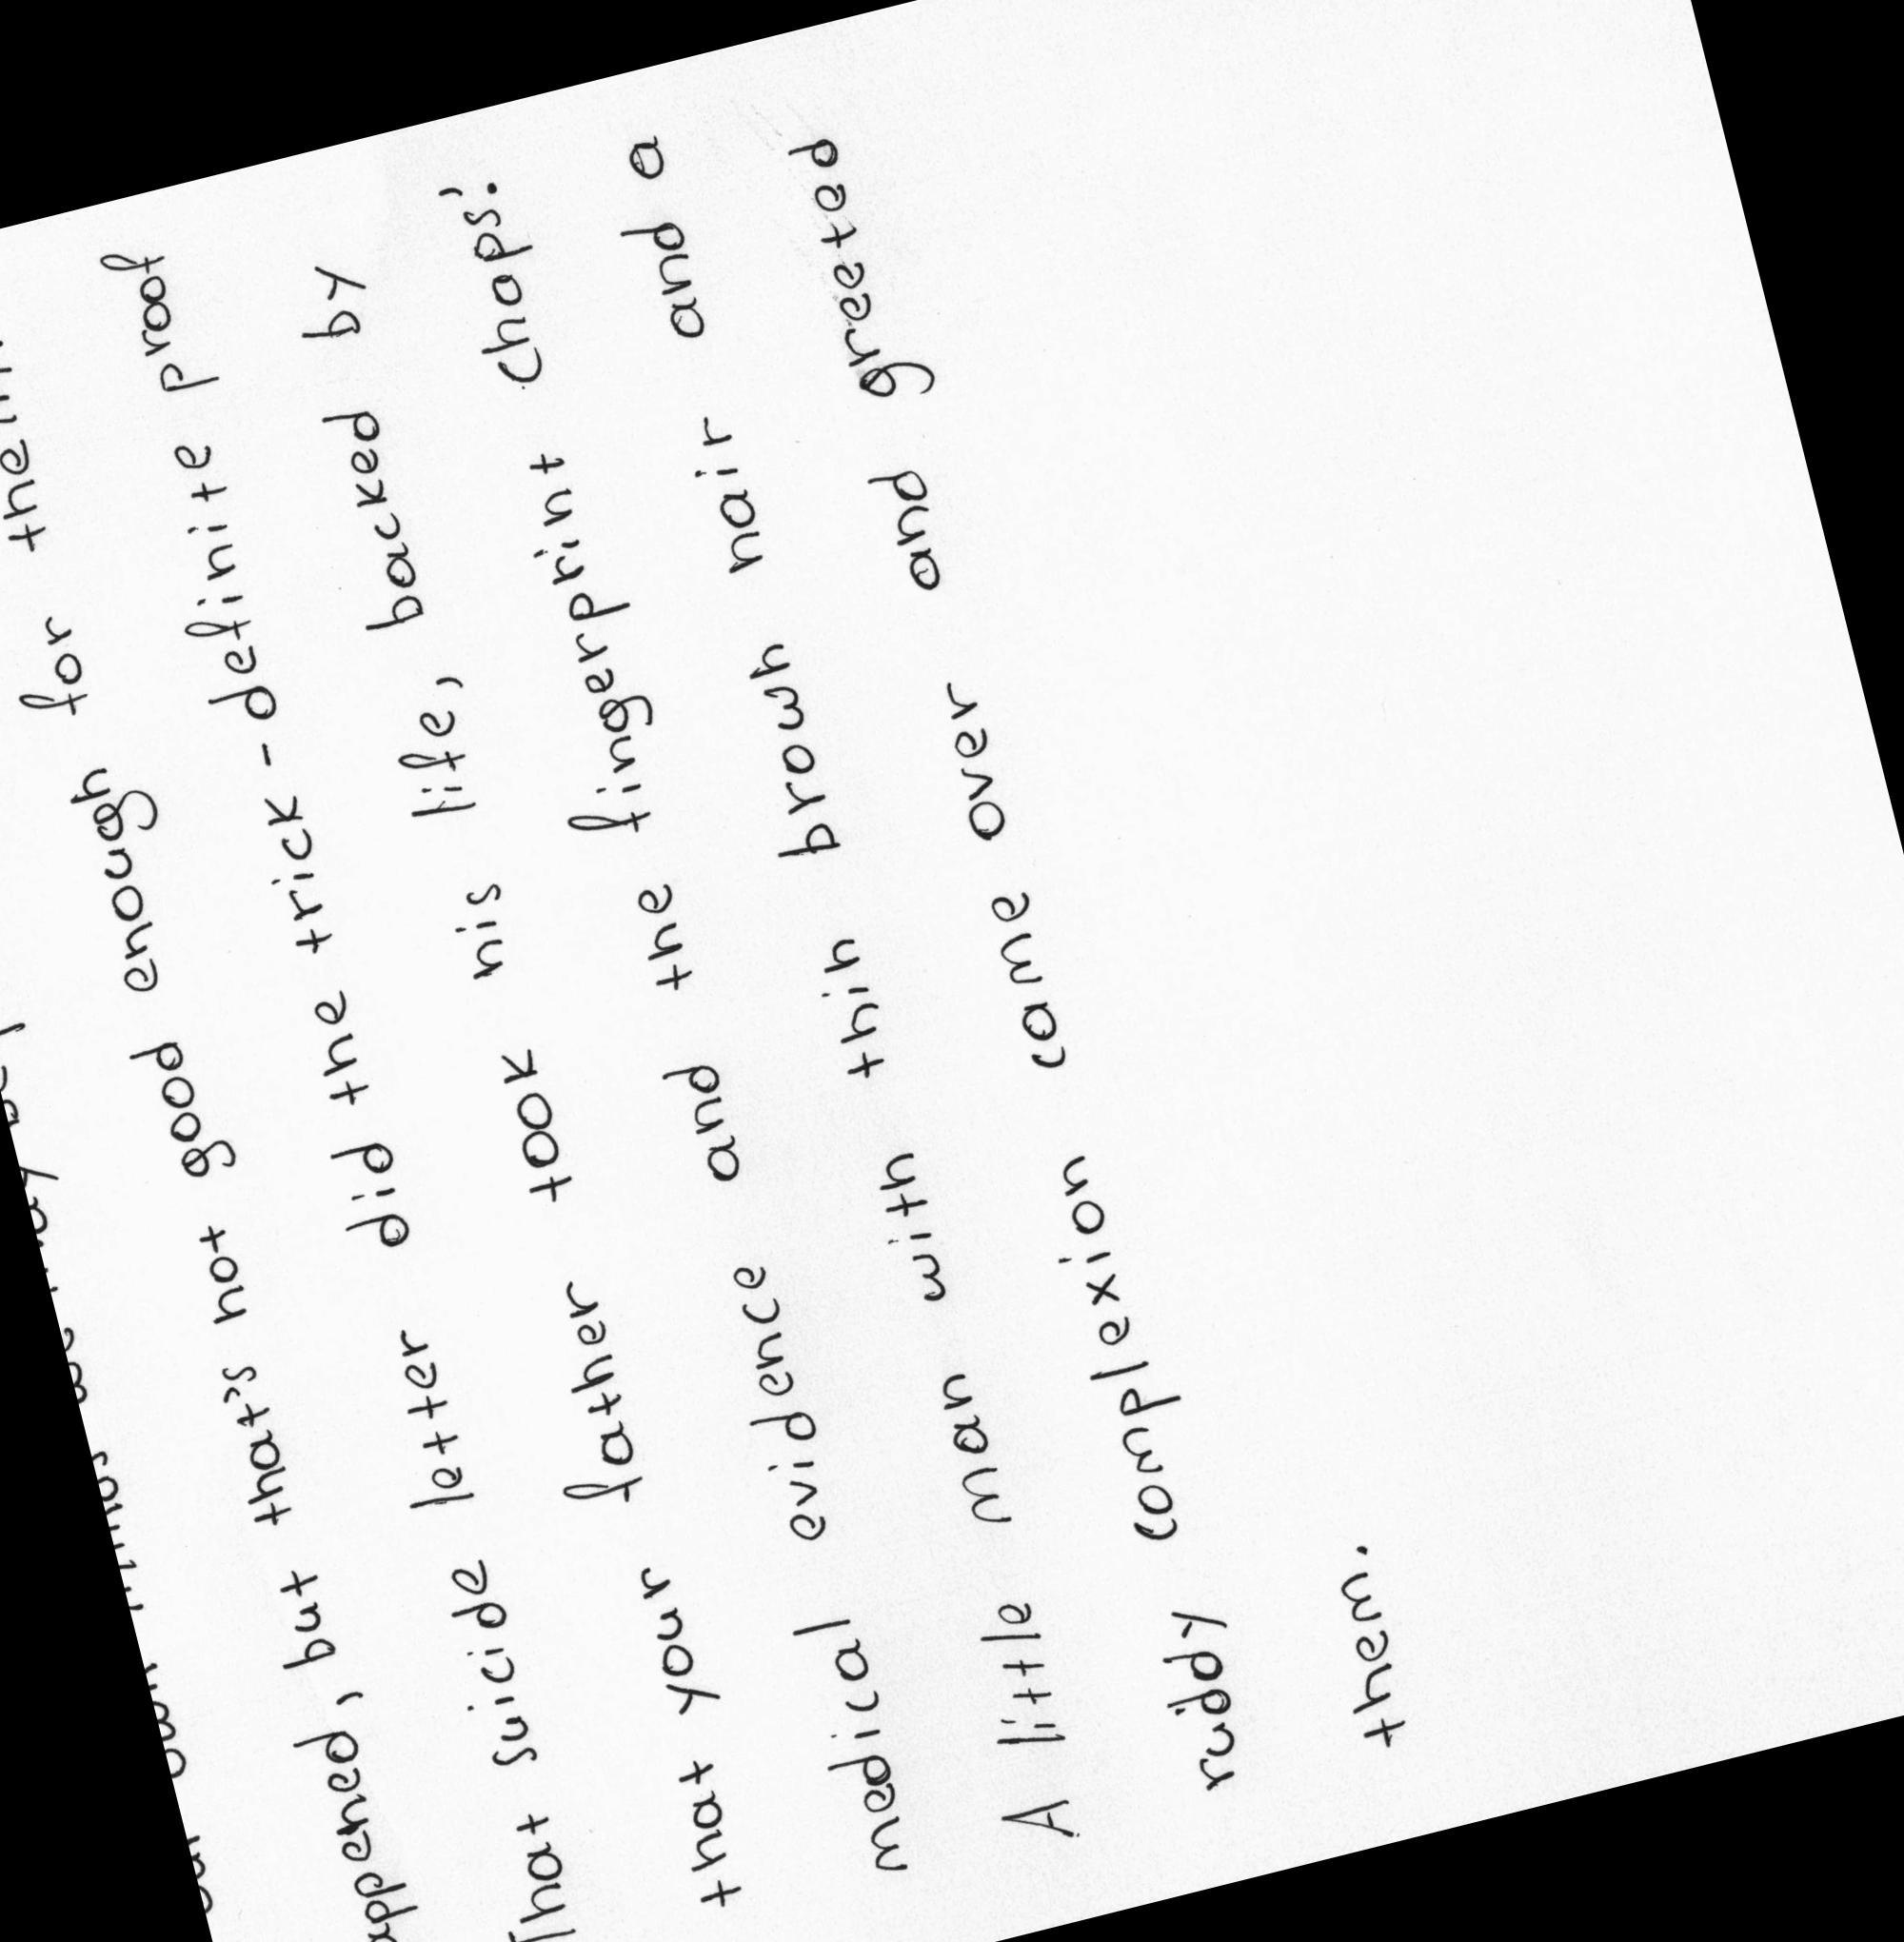 appened, but that's not good enough for
That suicide letter did the trick - definite proof
that your father took his life, backed by
medical evidence and the fingerprint chaps.'
A little man with thin brown hair and a
ruddy complexion came over and greeted
them.